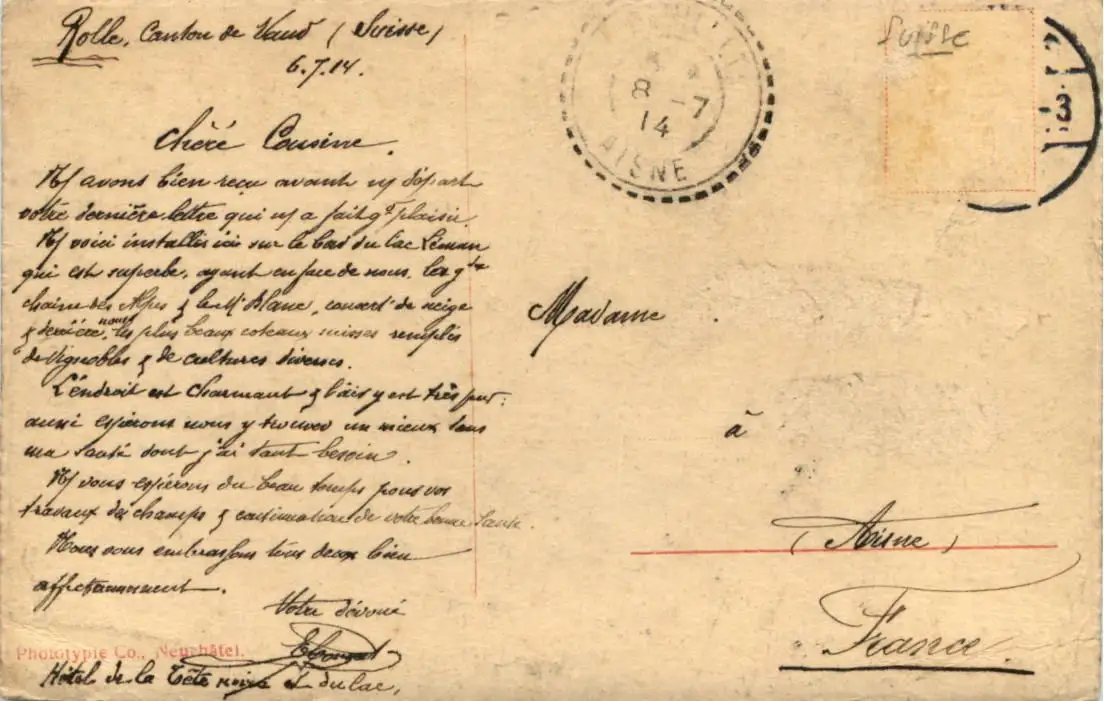 Rolle, Canton de Vaud (Suisse)
6.7.14.
Chère Cousine.
Ns avons bien reçu avant n/ départ
votre dernière lettre qui ns a fait gd plaisir
Ns voici installés ici sur le bord du lac Léman
qui est superbe, ayant en face de nous, les gdes
chaine des Alpes & le Mt Blanc, couvert de neige
& derrière nous, les plus beaux coteaux suisses remplis
de vignobles & de cultures diverses.
L'endroit est charmant & l'air y est très pur:
aussi espérons nous y trouver un mieux dans
ma santé dont j'ai tant besoin.
Ns vous espérons du beau temps pour vos
travaux des champs & continuation de votre bonne santé.
Nous vous embrassons tous deux bien
affectueusement.
Votre dévoué
Phototypie Co., Neuchâtel.
Hôtel de la Tête noire & du lac,
8 -7
14
AISNE
Suisse
3
Madame
à
(Aisne)
France